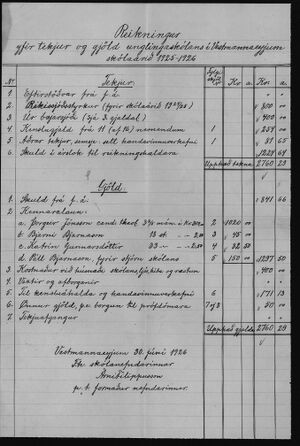 Reikningur
yfir tekjur og gjöld unglingaskólans í Vestmannaeyjum
skólaárið 1925-1926
Nr Tekjur Fylgiskjöl Kr a. Kr a.
1 Eftirstöðvar frá f. á.
2 Ríkissjóðsstyrkur (fyrir skólaárið 19 24/25) 800 00
3 Úr bæjarsjóði (sjá 3. gjaldal) 400 00
4 Kenslugjald frá 11 nemendum 1 258 00
5 Aðrar tekjur, seldt handavinnuverkefni 1 81 65
6 Skuld í árslok til reikningshaldara 1220 64
Upphæð tekna 2760 29
Gjöld.
1 Skuld frá f. á. 841 66
2 Kennaralaun:
a, Þorgeir Jónsson cand theol 3½ mán. á Kr. 2 1020 00
b, Bjarni Bjarnason 3
c, Katrín Gunnarsdóttir 4 82 50
d, Páll Bjarnason, fyrir stjórn skólans 5 150 00 1297 50
3 Kostnaður við húsnæði skólans, ljós, hita og ræstun 400 00
4 Vextir og afborganir
5 Til kensluáhalda og handavinnuverkefni 6 171 13
6 Önnur gjöld, þ.e. borgun til prófdómara 7 og 8 50 00
7 Tekjuafgangur
Upphæð gjalda 2760 29
Vestmannaeyjum 30. júní 1926
F. h. skólanefndarinnar
Árni Filippusson
p. t. formaður nefndarinnar